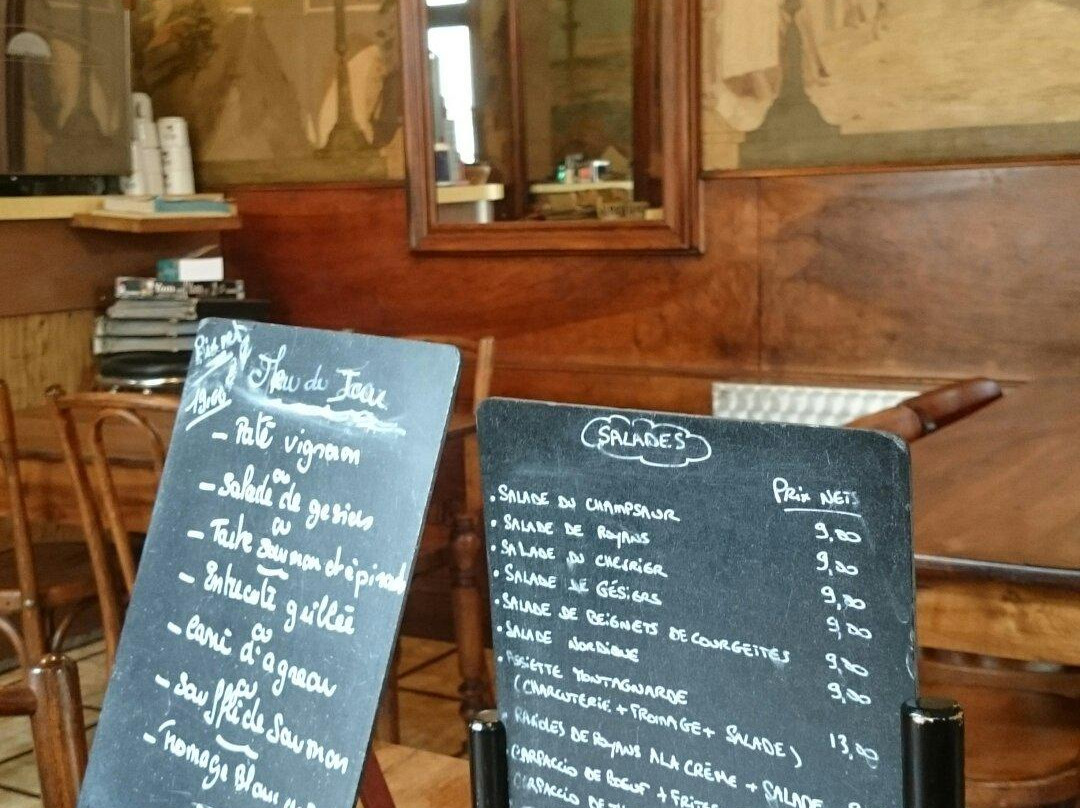 Menu du Jour
19,00
- Paté vigneron
ou
- Salade de gesiers
ou
- Tarte saumon et épinards
- Entrecote grillée
ou
- Carri d'agneau
ou
- Soufflé de Saumon
- Fromage Blanc
SALADES
PRIX NETS
• SALADE DU CHAMPSAUR 9,00
• SALADE DE ROYANS 9,00
• SALADE DU CHEVRIER 9,00
• SALADE DE GÉSIERS 9,00
• SALADE DE BEIGNETS DE COURGETTES 9,00
• SALADE NORDIQUE 9,00
• ASSIETTE MONTAGNARDE
(CHARCUTERIE + FROMAGE + SALADE) 13,00
• RAVIOLES DE ROYANS A LA CRÈME + SALADE
CARPACCIO DE BOEUF + FRITES
CARPACCIO DE